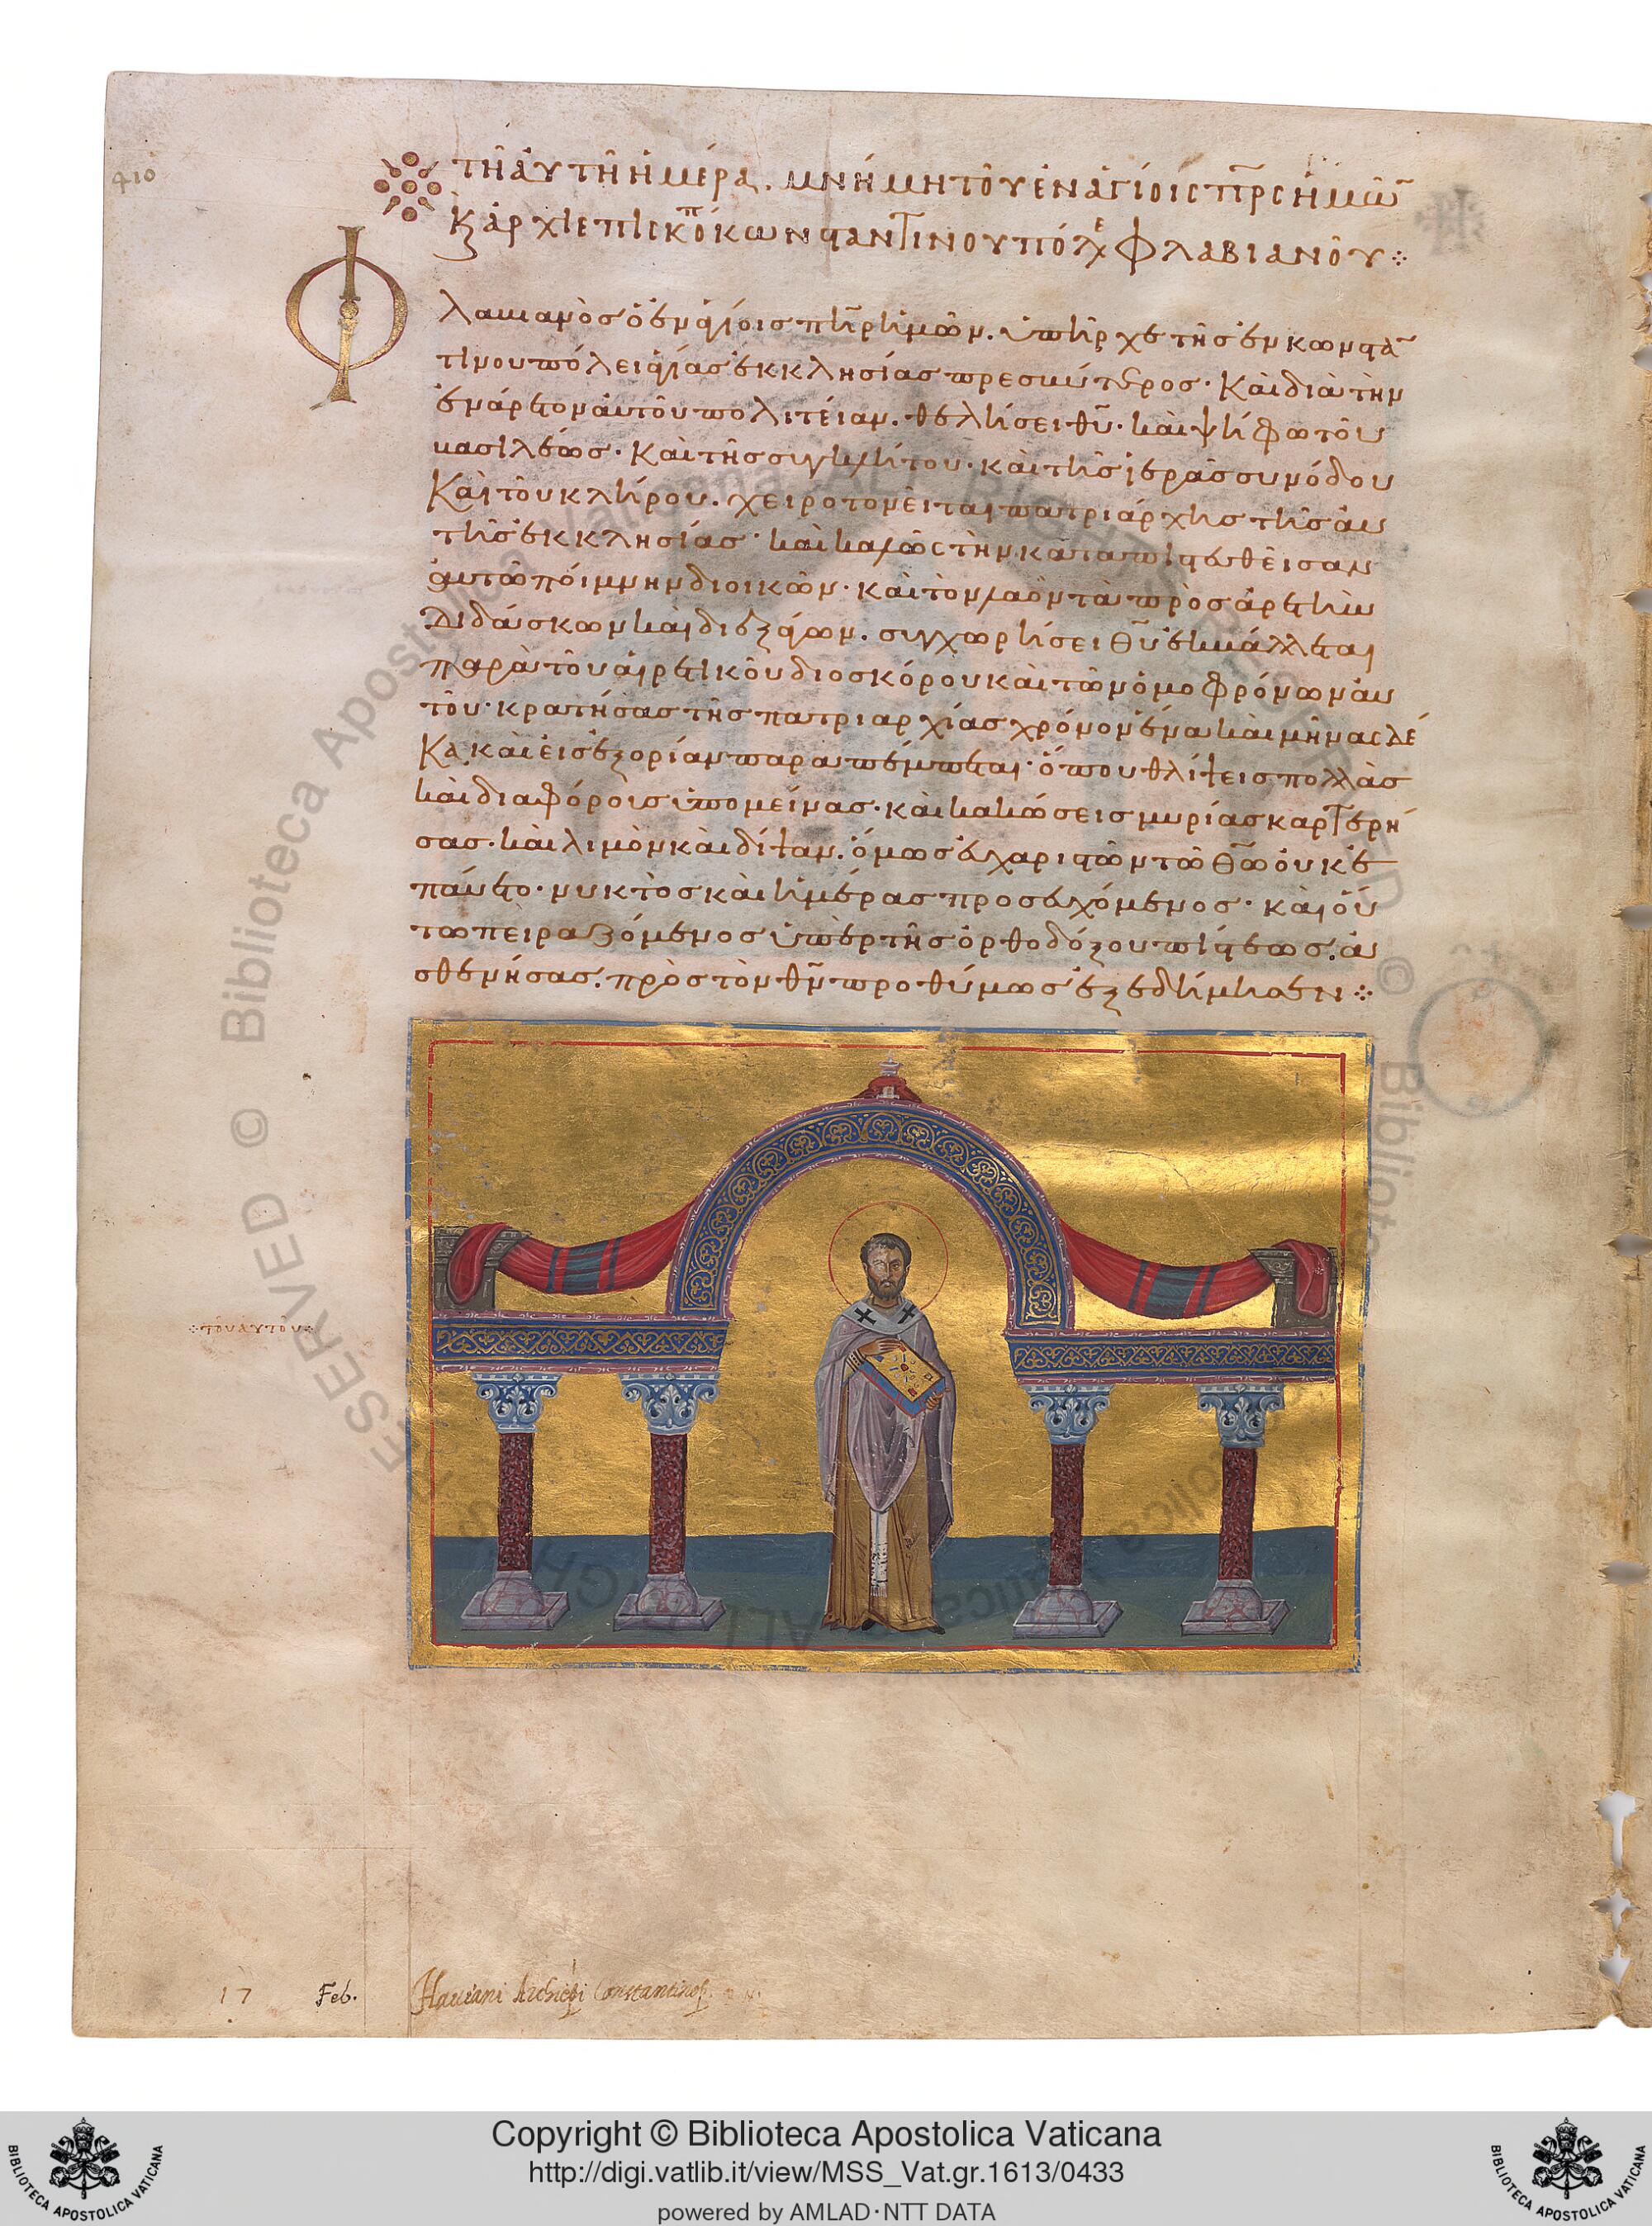 410
τῆ ἀυτῆ ἡμέρα. μνήμη τοῦ ἐν ἁγίοις π̅ρ̅ς ἡμῶ̅
κ̀ ἀρχιεπισκόπ κωνϛαντινουπόλε φλαβιανοῦ ⁘
Φλαυιανὸσ ὁ ἐν ἁγίοισ π̅η̅ρ ἡμῶν. ὑπῆρχε τῆσ ἐν κωνϛα̅
τινουπόλει ἁγίασ ἐκκλησίασ πρεσβύτεροσ· καὶ διὰ τὴν
ἐνάρετον ἀυτοῦ πολιτείαν. θελήσει θ̅υ̅· καὶ ψήφω τοῦ
βασιλέωσ· καὶ τῆσ συγκλήτου· καὶ τῆσ ἱερᾶσ συνόδου
καὶ τοῦ κλήρου. χειροτονεῖται πατριάρχησ τῆσ ἀυ
τῆσ ἐκκλησίασ· καὶ καλῶς τὴν καταπιϛευθεῖσαν
ἀυτῶ ποίμνην διοικῶν· καὶ τὸν λαὸν τὰ πρὸσ ἀρετὴν
διδάσκων καὶ διεξάγων. συγχωρήσει θ̅υ̅ ἐκβάλλεται
παρὰ τοῦ αἱρετικοῦ διοσκόρου καὶ τῶν ὁμοφρόνων ἀυ
τοῦ· κρατήσασ τῆσ πατριαρχίασ χρόνον ἕνα καὶ μῆνας δέ
κα, καὶ εἰσ ἐξορίαν παραπέμπεται· ὅπου θλίψεισ πολλὰσ
καὶ διαφόροισ ὑπομείνασ· καὶ κακώσεισ μυρίασ καρτερή
σασ· καὶ λιμὸν καὶ δίψαν. ὅμωσ ἐυχαριϛῶν τῶ θ̅ῶ̅ ὀυκ ἐ
παύετο· νυκτὸσ καὶ ἡμέρασ προσευχόμενοσ· καὶ οὕ
τω πειραζόμενοσ ὑπὲρ τῆσ ὀρθοδόξου πίϛεωσ. ἀ
σθενήσασ. πρὸσ τὸν θ̅ν̅ προθύμωσ ἐξεδήμησεν ⁘
⁘ τοῦ αυτοῦ ⁘
17 Feb. Flaviani Archiepi Constantinop.
RESERVED © Biblioteca Apostolica Vaticana ALL RIGHTS RESERVED © Biblioteca Apostolica Vaticana ALL RIGHTS
Copyright © Biblioteca Apostolica Vaticana
http://digi.vatlib.it/view/MSS_Vat.gr.1613/0433
powered by AMLAD·NTT DATA
BIBLIOTECA APOSTOLICA VATICANA
BIBLIOTECA APOSTOLICA VATICANA